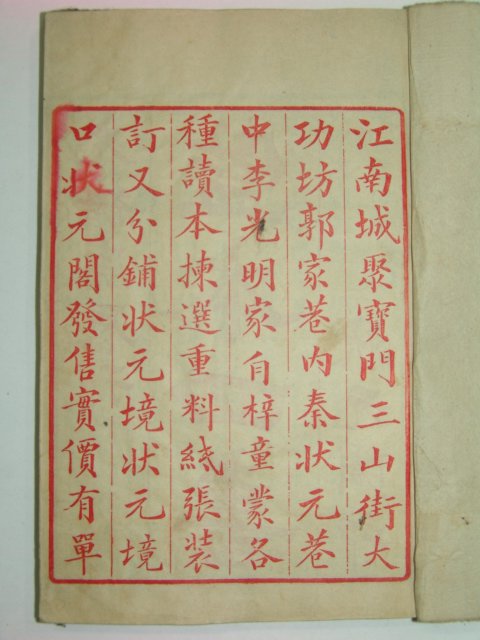 江南城聚寶門三山街大
功坊郭家巷内秦狀元巷
中李光明家自梓童蒙各
種讀本揀選重料紙張裝
訂又分鋪狀元境狀元境
口狀元閣發售實價有單